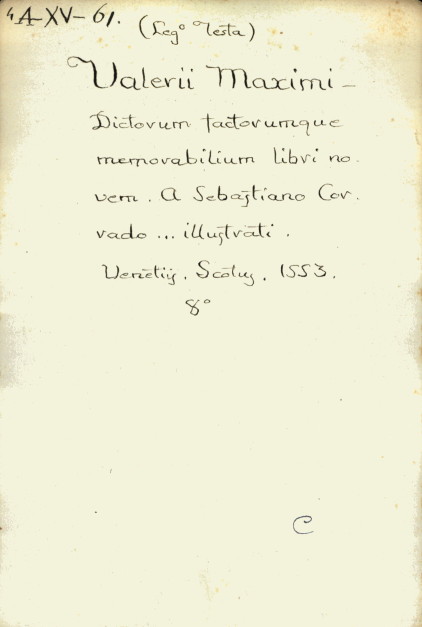 4A-XV-61.
(Leg° Testa)
Valerii Maximi -
Dictorum factorumque
memorabilium libri no.
vem. A Sebastiano Cor.
rado ... illustrati.
Venetijs. Scotus. 1553.
8°
C